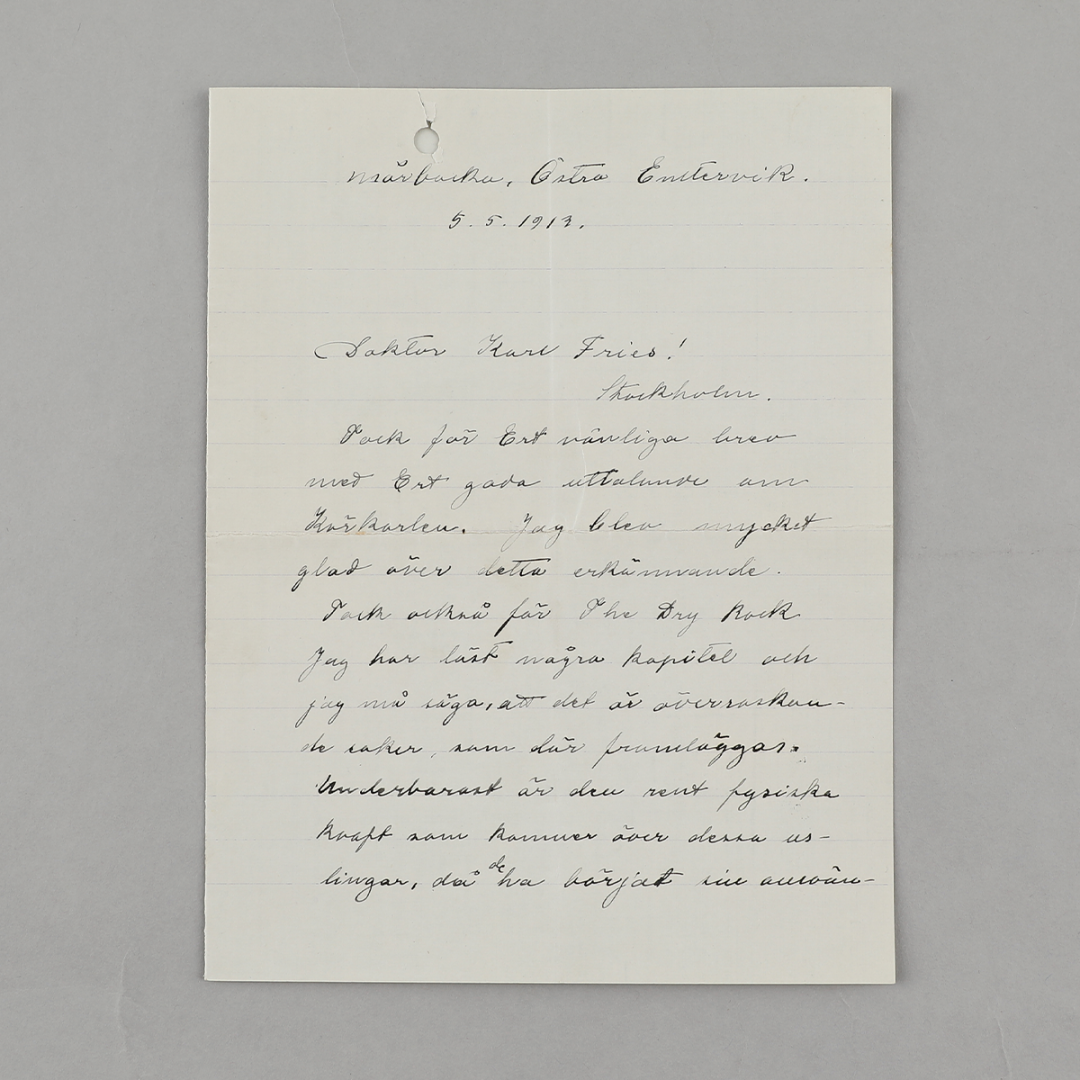 Mårbacka, Östra Emtervik.
5. 5. 1913.
Doktor Karl Fries!
Stockholm.
Tack för Ert vänliga brev
med Ert goda uttalande om
Körkarlen. Jag blev mycket
glad över detta erkännande.
Tack också för The Dry Rock
Jag har läst några kapitel och
jag må säga, att det är överraskan-
de saker, som där framläggas.
Underbarast är den rent fysiska
kraft som kommer över dessa us-
lingar, då de ha börjat sin omvän-